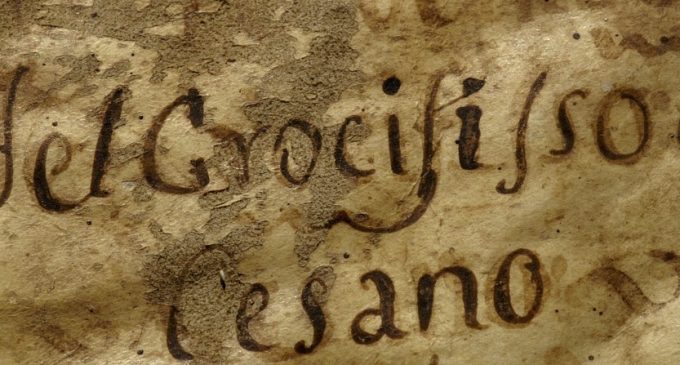 del Crocifisso
Cesano